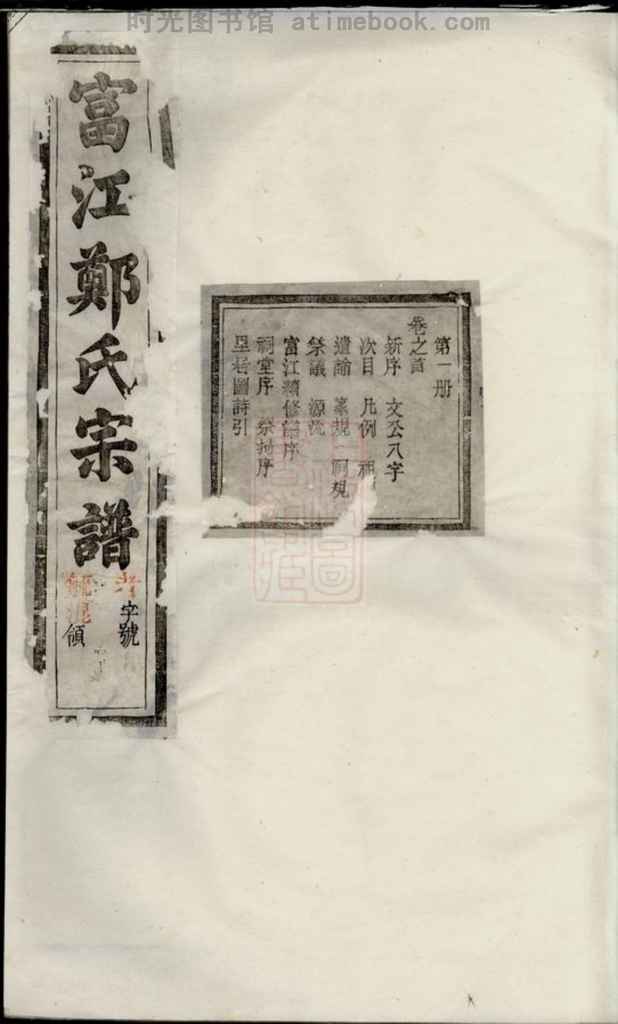 时光图书馆 atimebook.com
富江鄭氏宗譜
字號
領
第一册
卷之首
新序 文公八字
次目 凡例
遺諭 篆規 祠規
祭議 源流
富江續修譜序
祠堂序 祭掃序
圖詩引